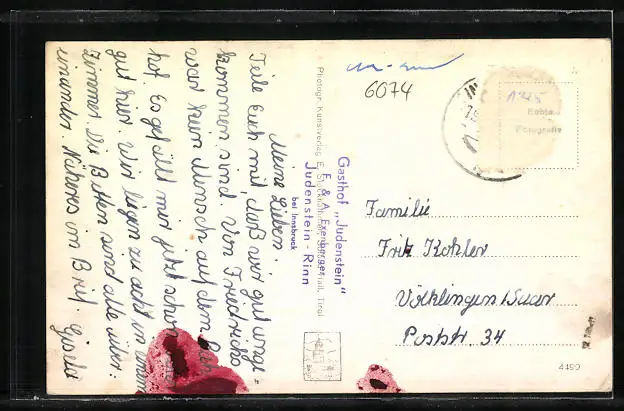 Meine Lieben.
Teile Euch mit, daß wir gut ange=
kommen sind. Von Friedrichs
war kein Mensch auf dem
hof. Es gefällt mir jetzt schon
gut hier. Wir liegen zu acht in
Zimmer. Die Betten sind alle über=
einander. Näheres im Brief. Gisela
Photogr. Kunstverlag
Tirol
Gasthof „Judenstein“
F. & A. Exenberger
Judenstein - Rinn
bei Innsbruck
6074
Echte
Fotografie
Familie
Fritz Kohler
Völklingen/Saar
Poststr. 34
4499